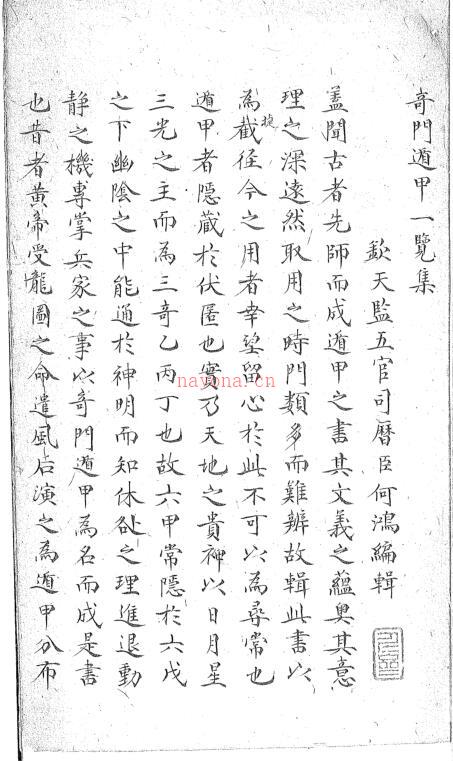 奇門遁甲一覽集
欽天監五官司曆臣何鴻編輯
蓋聞古者先師而成遁甲之書其文義之蘊奧其意
理之深遠然取用之時門類多而難辨故輯此書以
為截捷徑今之用者幸望留心於此不可以為尋常也
遁甲者隱藏於伏匿也實乃天地之貴神以日月星
三光之主而為三奇乙丙丁也故六甲常隱於六戊
之下幽陰之中能通於神明而知休咎之理進退動
靜之機專掌兵家之事以奇門遁甲為名而成是書
也昔者黃帝受龍圖之命遣風后演之為遁甲分布
nayona.cn